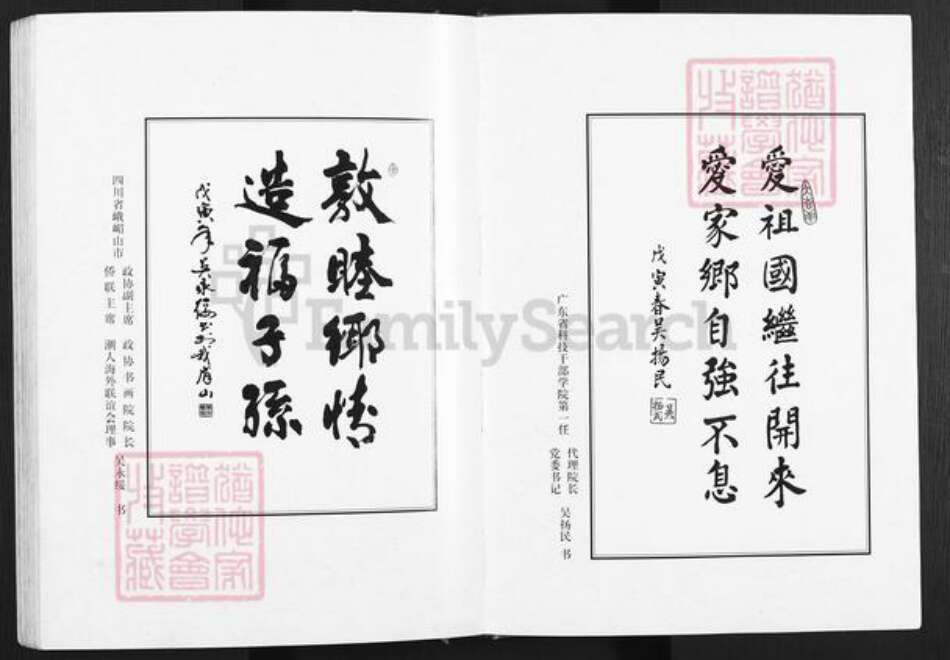 愛祖國繼往開來
愛家鄉自強不息
戊寅春吴揚民
广东省科技干部学院第一任
代理院长
党委书记
吴扬民 书
敦睦鄉情
造福子孫
戊寅年吴永绥书於峨眉山
四川省峨嵋山市
政协副主席
侨联主席
政协书画院院长
潮人海外联谊会理事
吴永绥 书
FamilySearch